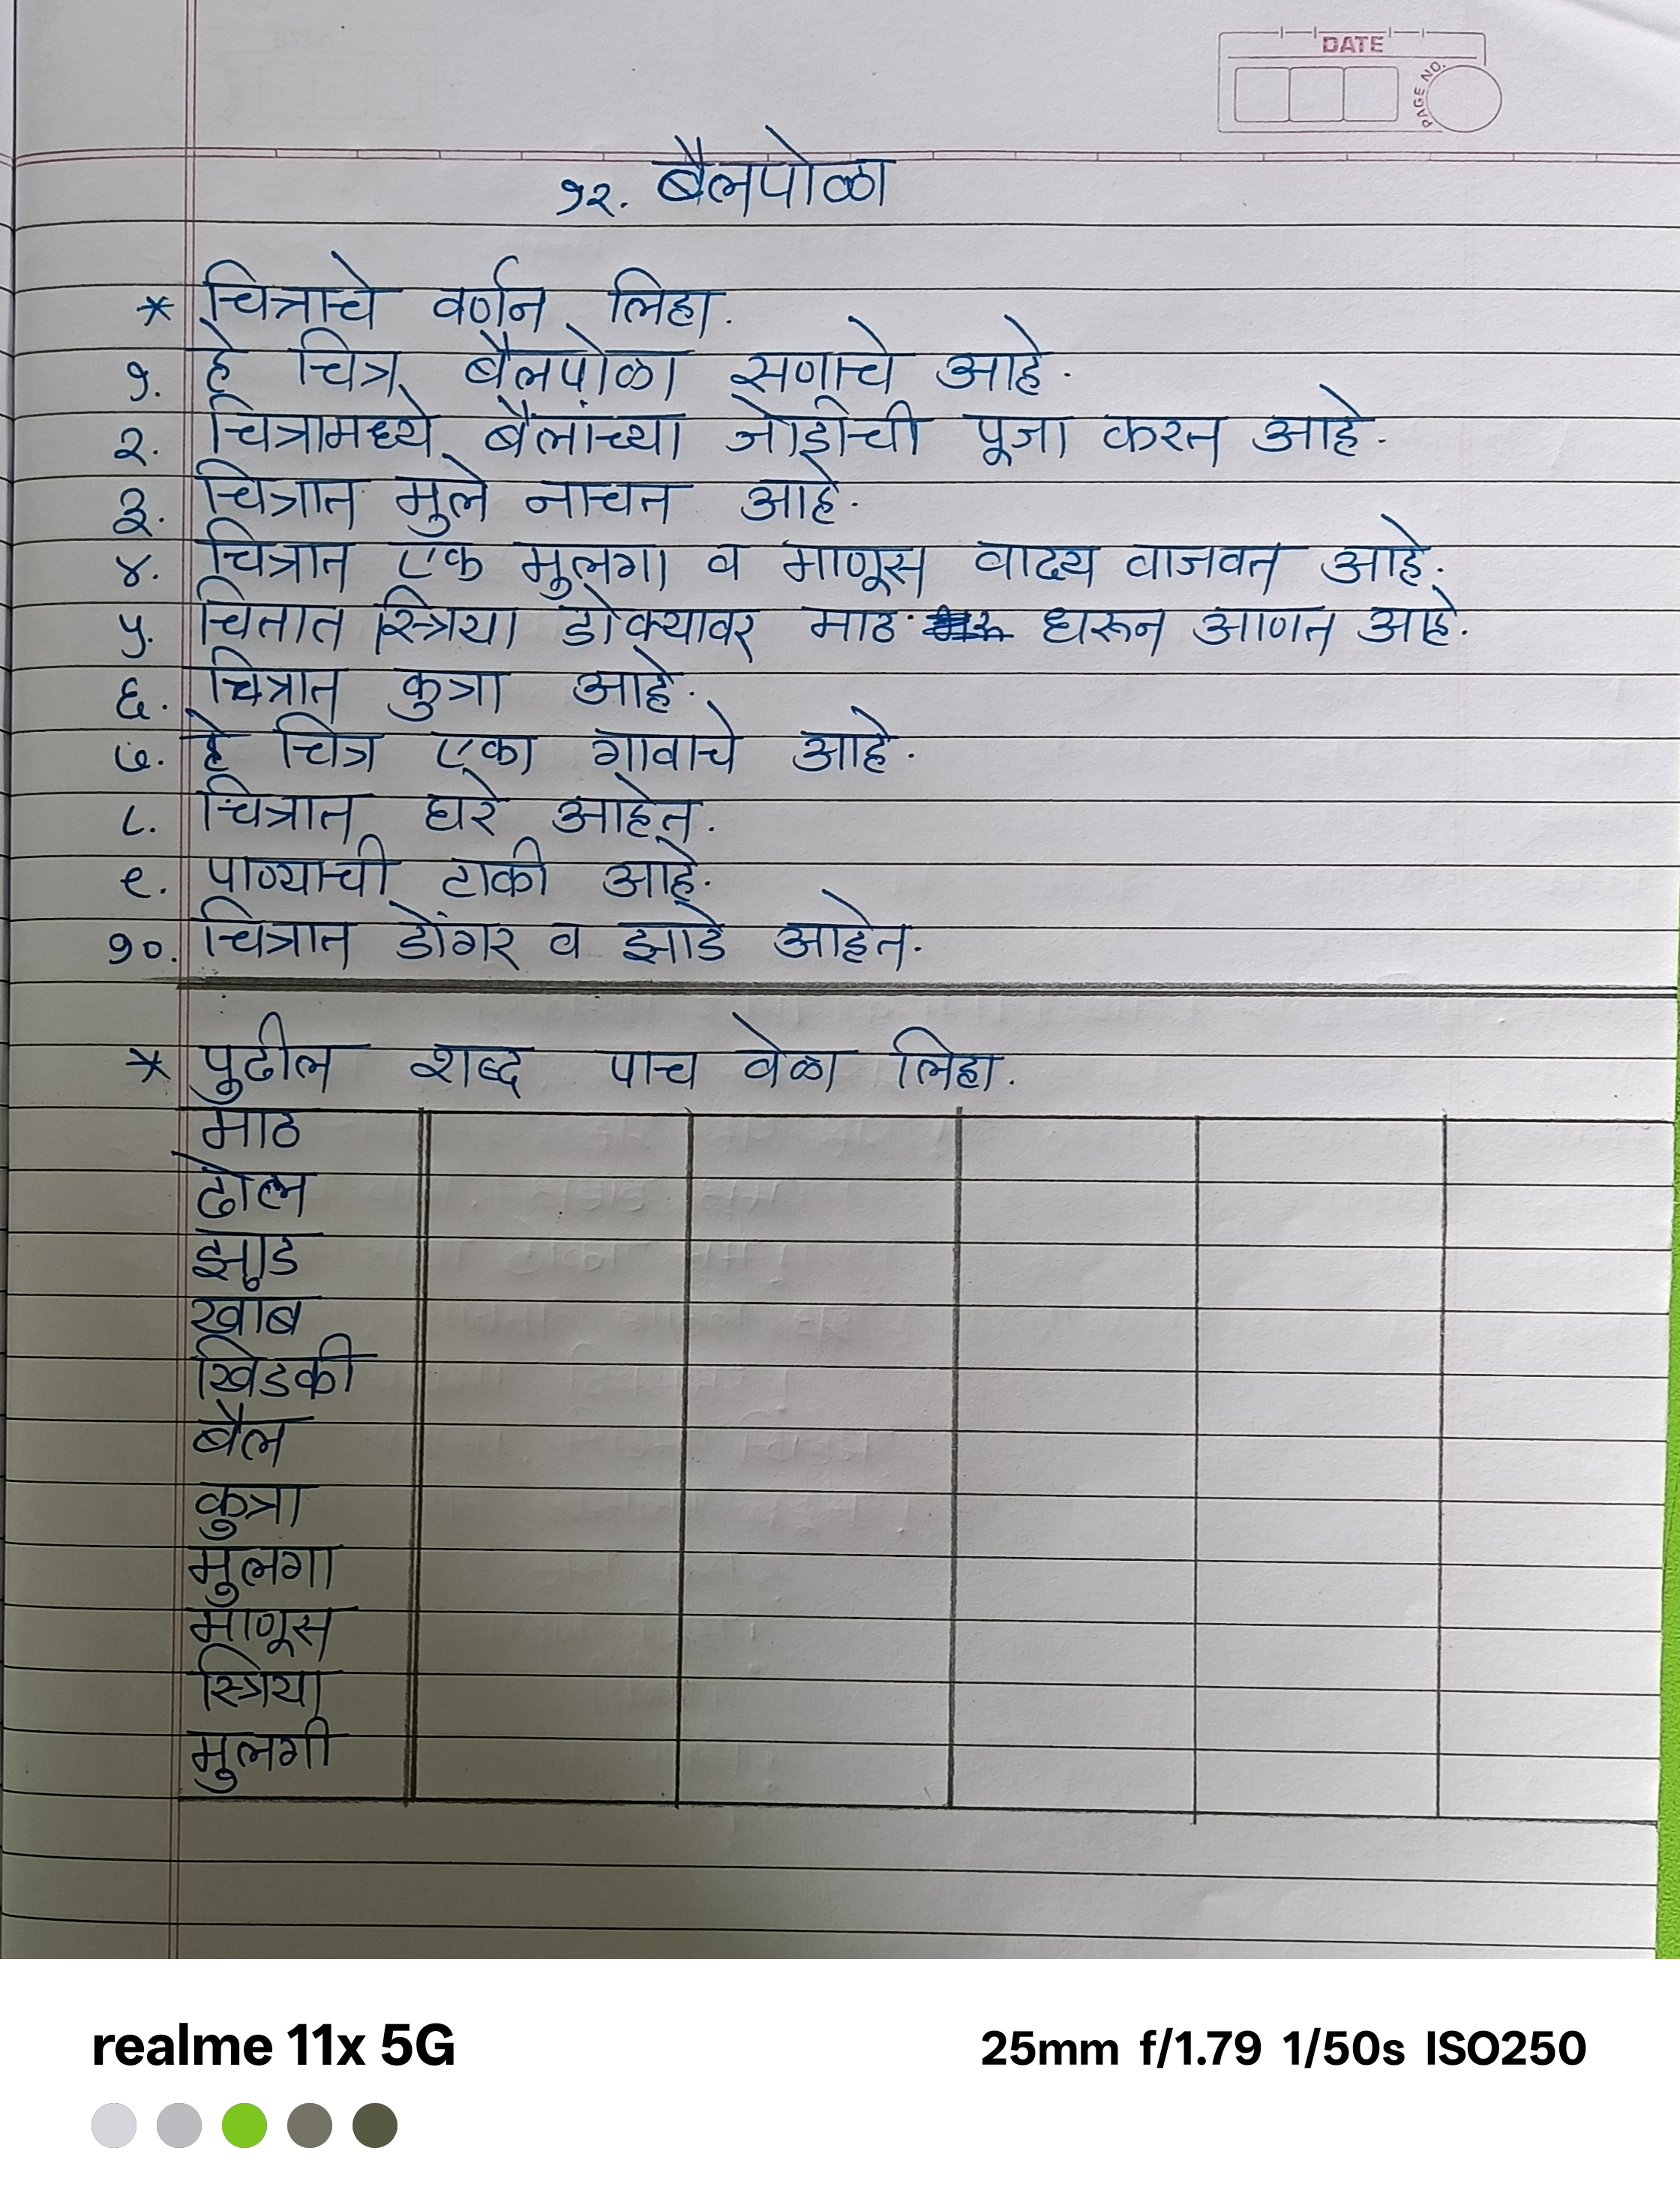 DATE
PAGE NO.
१२. बैलपोळा
* चित्राचे वर्णन लिहा.
१. हे चित्र बैलपोळा सणाचे आहे.
२. चित्रामध्ये बैलांच्या जोडीची पूजा करत आहे.
३. चित्रात मुले नाचत आहे.
४. चित्रात एक मुलगा व माणूस वाद्य वाजवत आहे.
५. चितात स्त्रिया डोक्यावर माठ धरून आणत आहे.
६. चित्रात कुत्रा आहे.
७. हे चित्र एका गावाचे आहे.
८. चित्रात घरे आहेत.
९. पाण्याची टाकी आहे.
१०. चित्रात डोंगर व झाडे आहेत.
* पुढील शब्द पाच वेळा लिहा.
माठ
ढोल
झाड
खांब
खिडकी
बैल
कुत्रा
मुलगा
माणूस
स्त्रिया
मुलगी
realme 11x 5G 25mm f/1.79 1/50s ISO250